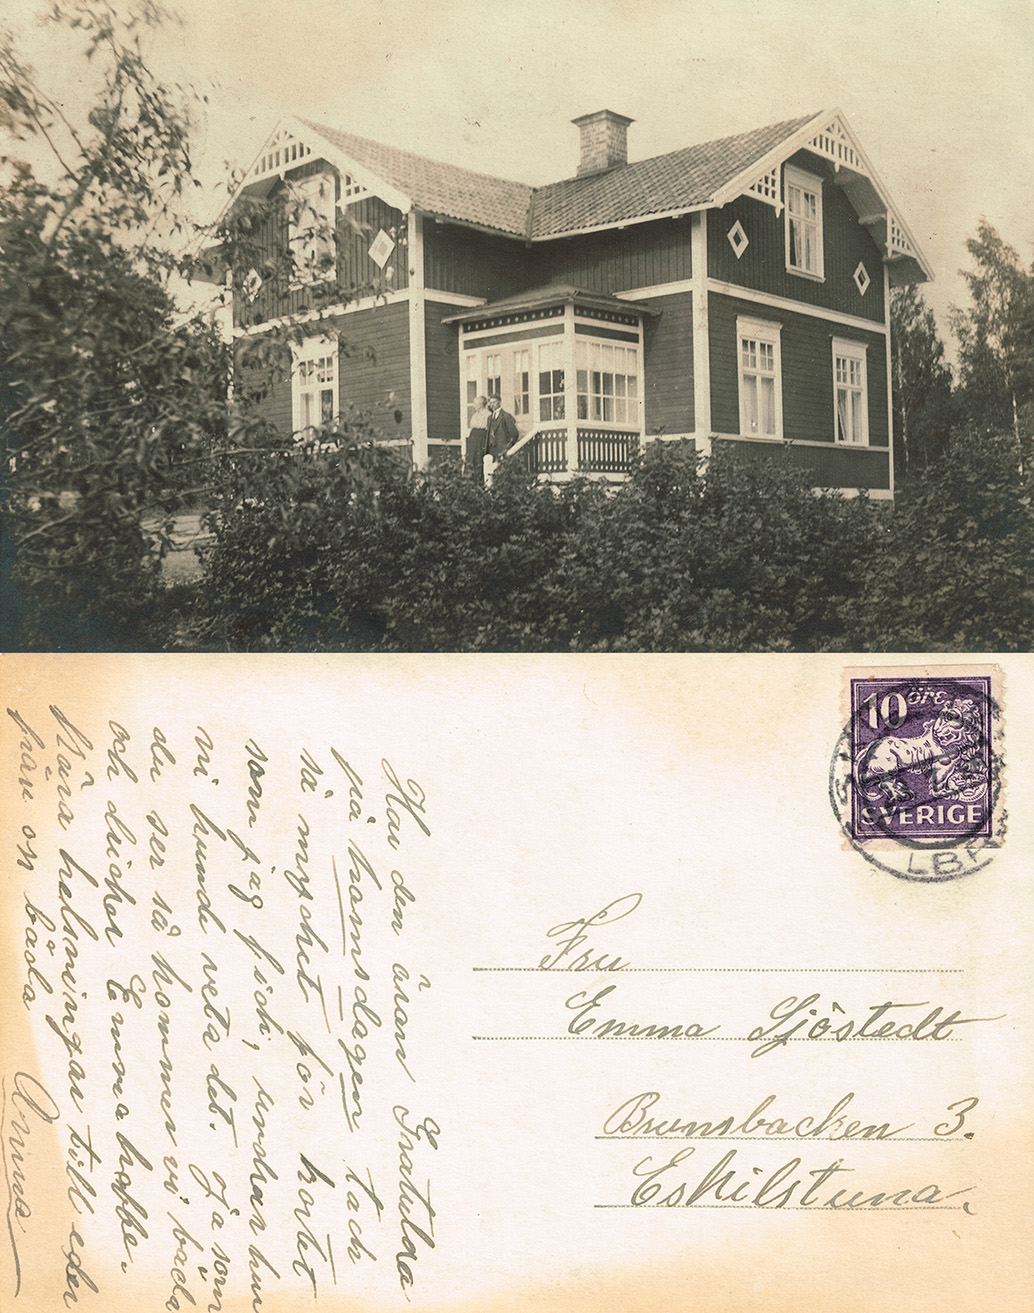 Har den äran Gratulera
på namnsdagen tack
så mycket för kortet
som jag fick, undrar hur
vi kunde veta det. Ja som
du ser så kommer vi båda
och dricker Emma kaffe.
Kära helsningar till eder
från oss båda Anna
10 öre
SVERIGE
LBR
Fru
Emma Sjöstedt
Brunsbacken 3.
Eskilstuna.